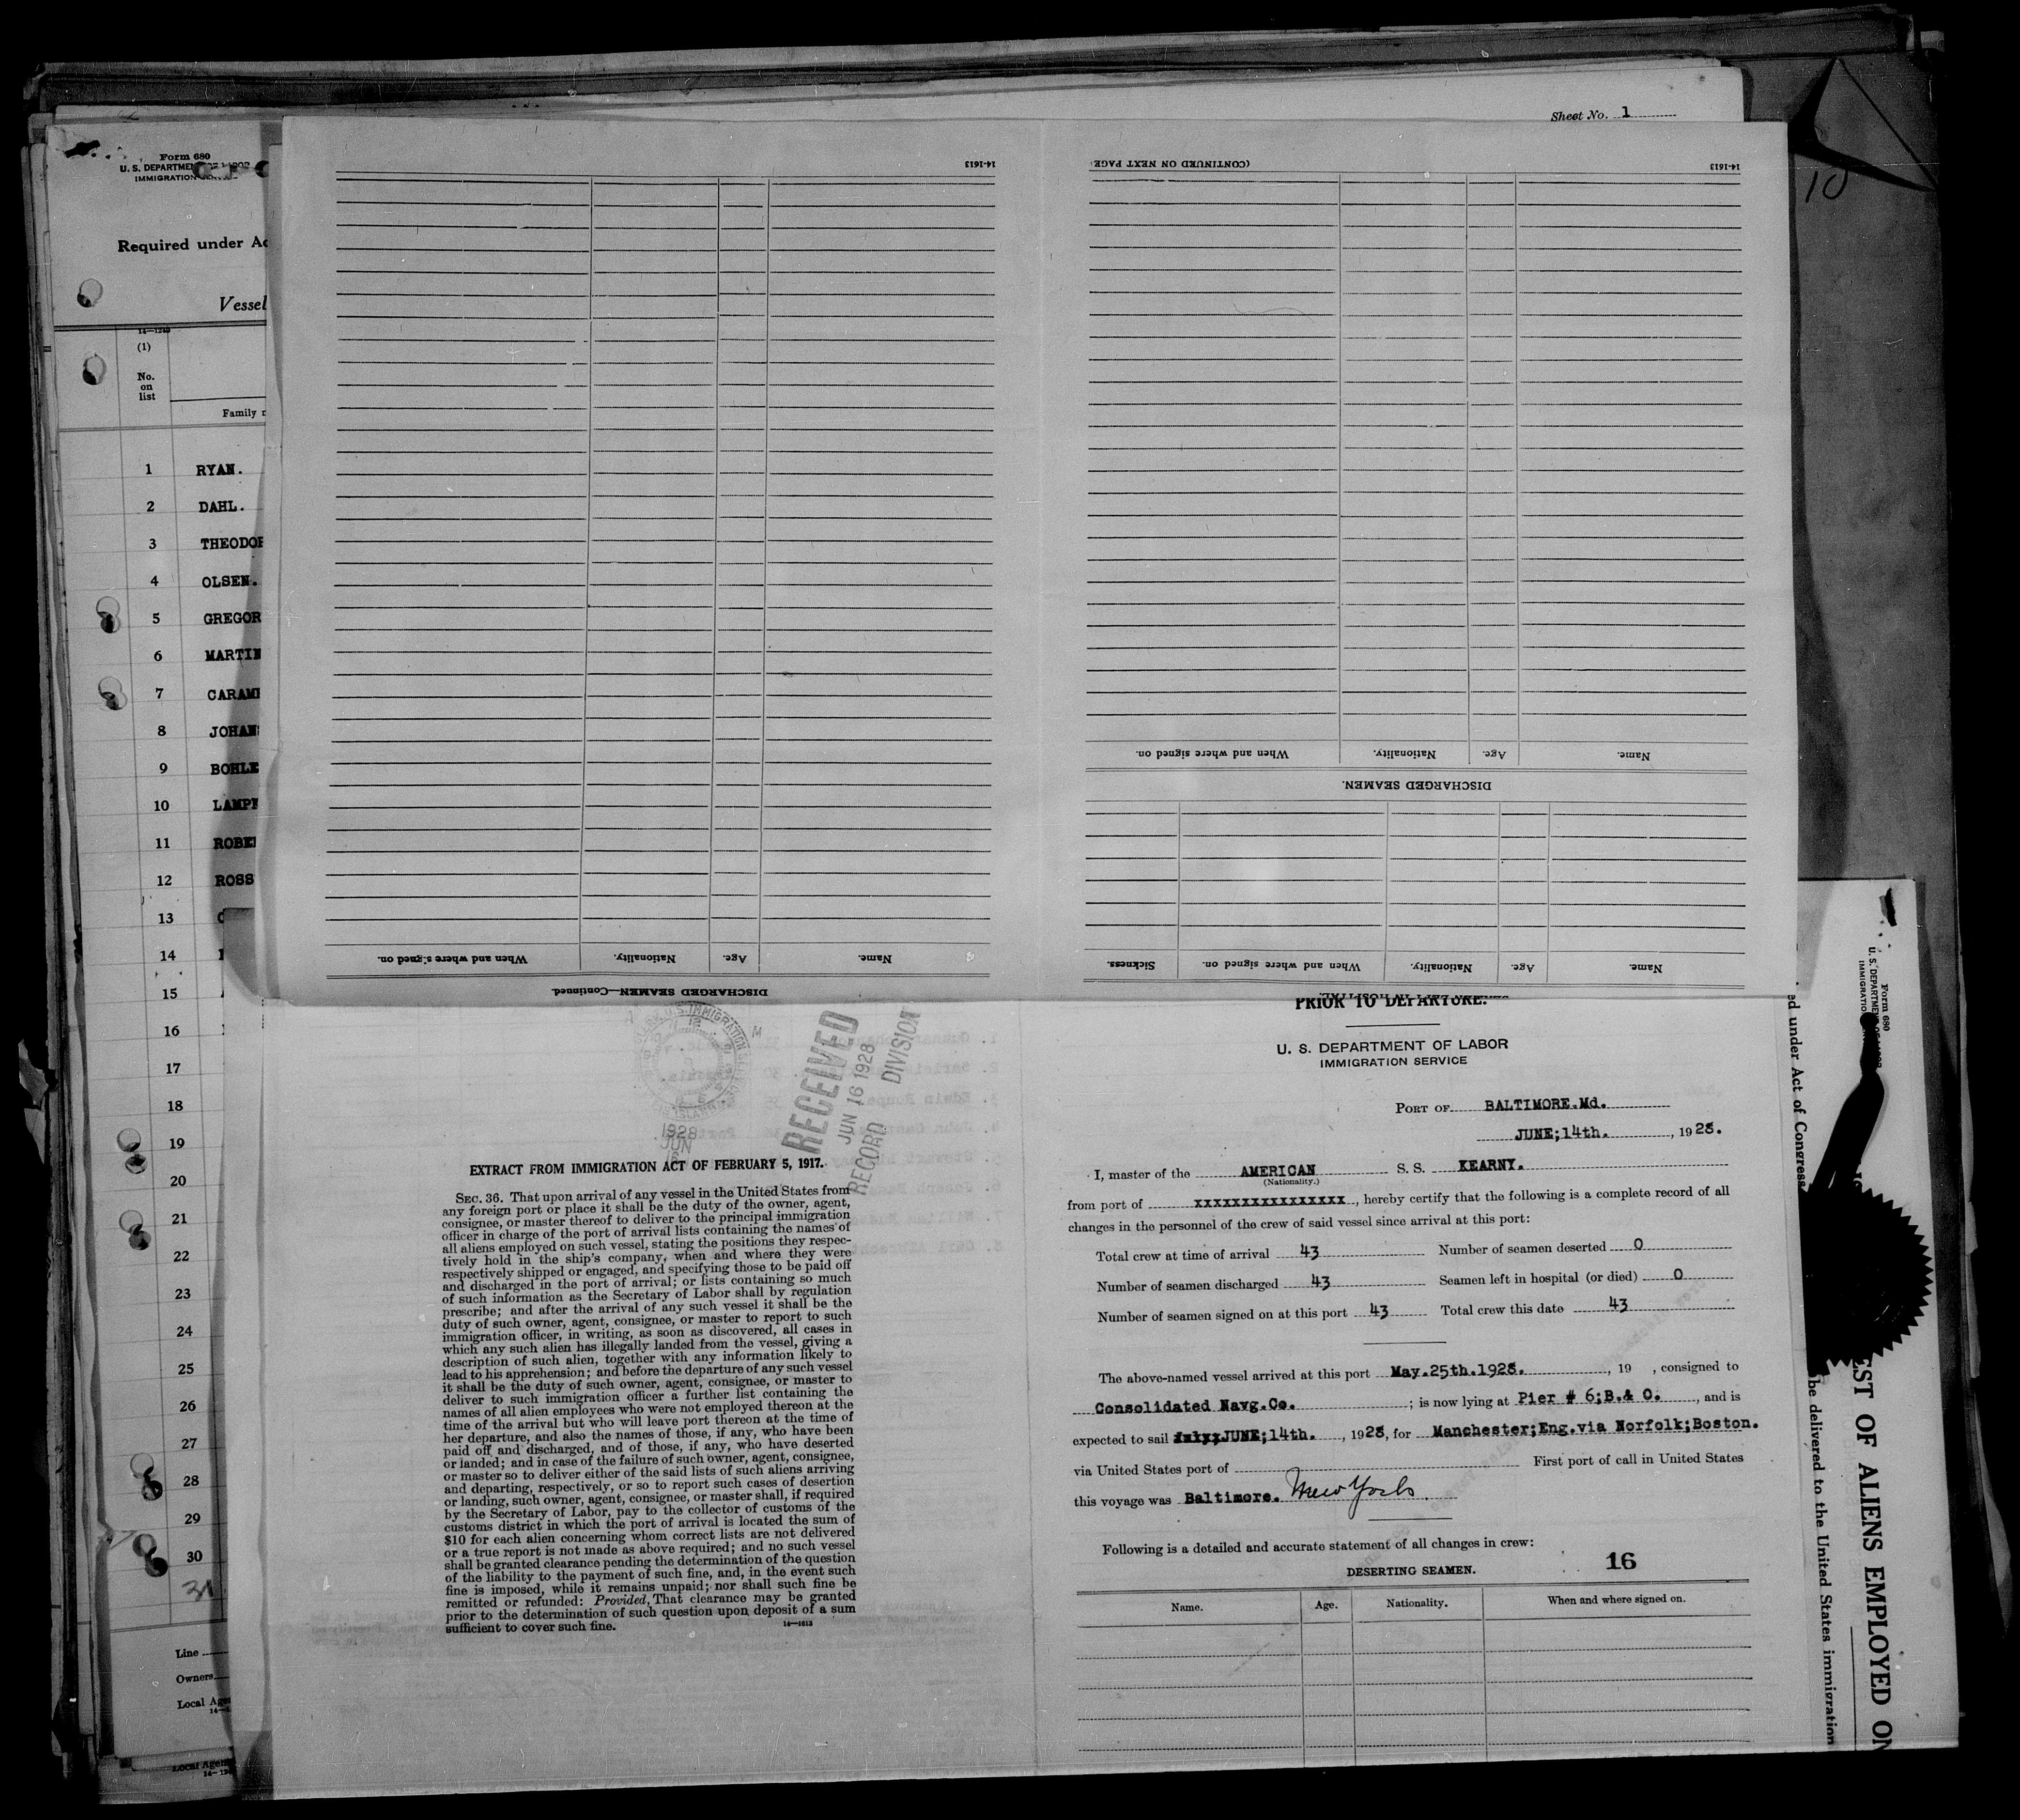 Sheet No. 1
10
Form 680
U. S. DEPARTMENT OF LABOR
IMMIGRATION
Required under Ac
Vessel
14—1240
(1)
No.
on
list
Family n
1 RYAN.
2 DAHL.
3 THEODOR
4 OLSEN.
5 GREGOR
6 MARTIN
7 CARAM
8 JOHAN
9 BOHLE
10 LAMP
11 ROBE
12 ROSS
13
14
15
16
17
18
19
20
21
22
23
24
25
26
27
28
29
30
31
Line
Owners
Local Age
Local Agen
14-1613
DISCHARGED SEAMEN—Continued.
Name. Age. Nationality. When and where signed on.
14-1613
(CONTINUED ON NEXT PAGE)
Name. Age. Nationality. When and where signed on.
DISCHARGED SEAMEN.
Name. Age. Nationality. When and where signed on. Sickness.
U.S. IMMIGRATION
1928
JUN
16
RECEIVED
JUN 16 1928
RECORD DIVISION
EXTRACT FROM IMMIGRATION ACT OF FEBRUARY 5, 1917.
SEC. 36. That upon arrival of any vessel in the United States from
any foreign port or place it shall be the duty of the owner, agent,
consignee, or master thereof to deliver to the principal immigration
officer in charge of the port of arrival lists containing the names of
all aliens employed on such vessel, stating the positions they respec-
tively hold in the ship's company, when and where they were
respectively shipped or engaged, and specifying those to be paid off
and discharged in the port of arrival; or lists containing so much
of such information as the Secretary of Labor shall by regulation
prescribe; and after the arrival of any such vessel it shall be the
duty of such owner, agent, consignee, or master to report to such
immigration officer, in writing, as soon as discovered, all cases in
which any such alien has illegally landed from the vessel, giving a
description of such alien, together with any information likely to
lead to his apprehension; and before the departure of any such vessel
it shall be the duty of such owner, agent, consignee, or master to
deliver to such immigration officer a further list containing the
names of all alien employees who were not employed thereon at the
time of the arrival but who will leave port thereon at the time of
her departure, and also the names of those, if any, who have been
paid off and discharged, and of those, if any, who have deserted
or landed; and in case of the failure of such owner, agent, consignee,
or master so to deliver either of the said lists of such aliens arriving
and departing, respectively, or so to report such cases of desertion
or landing, such owner, agent, consignee, or master shall, if required
by the Secretary of Labor, pay to the collector of customs of the
customs district in which the port of arrival is located the sum of
$10 for each alien concerning whom correct lists are not delivered
or a true report is not made as above required; and no such vessel
shall be granted clearance pending the determination of the question
of the liability to the payment of such fine, and, in the event such
fine is imposed, while it remains unpaid; nor shall such fine be
remitted or refunded: Provided, That clearance may be granted
prior to the determination of such question upon deposit of a sum
sufficient to cover such fine.
14—1613
PRIOR TO DEPARTURE.
U. S. DEPARTMENT OF LABOR
IMMIGRATION SERVICE
PORT OF BALTIMORE.Md.
JUNE;14th. , 1928.
I, master of the AMERICAN S. S. KEARNY.
(Nationality.)
from port of xxxxxxxxxxxxxxxx, hereby certify that the following is a complete record of all
changes in the personnel of the crew of said vessel since arrival at this port:
Total crew at time of arrival 43 Number of seamen deserted 0
Number of seamen discharged 43 Seamen left in hospital (or died) 0
Number of seamen signed on at this port 43 Total crew this date 43
The above-named vessel arrived at this port May.25th.1928. , 19 , consigned to
Consolidated Navg.Co. ; is now lying at Pier # 6;B.& O. , and is
expected to sail JUNE;14th. , 1928, for Manchester;Eng.via Norfolk;Boston.
via United States port of First port of call in United States
this voyage was Baltimore. New York
Following is a detailed and accurate statement of all changes in crew:
16
DESERTING SEAMEN.
Name. Age. Nationality. When and where signed on.
Form 680
U. S. DEPARTMENT OF LABOR
IMMIGRATIO
ed under Act of Congress
be delivered to the United States immigration
LIST OF ALIENS EMPLOYED ON